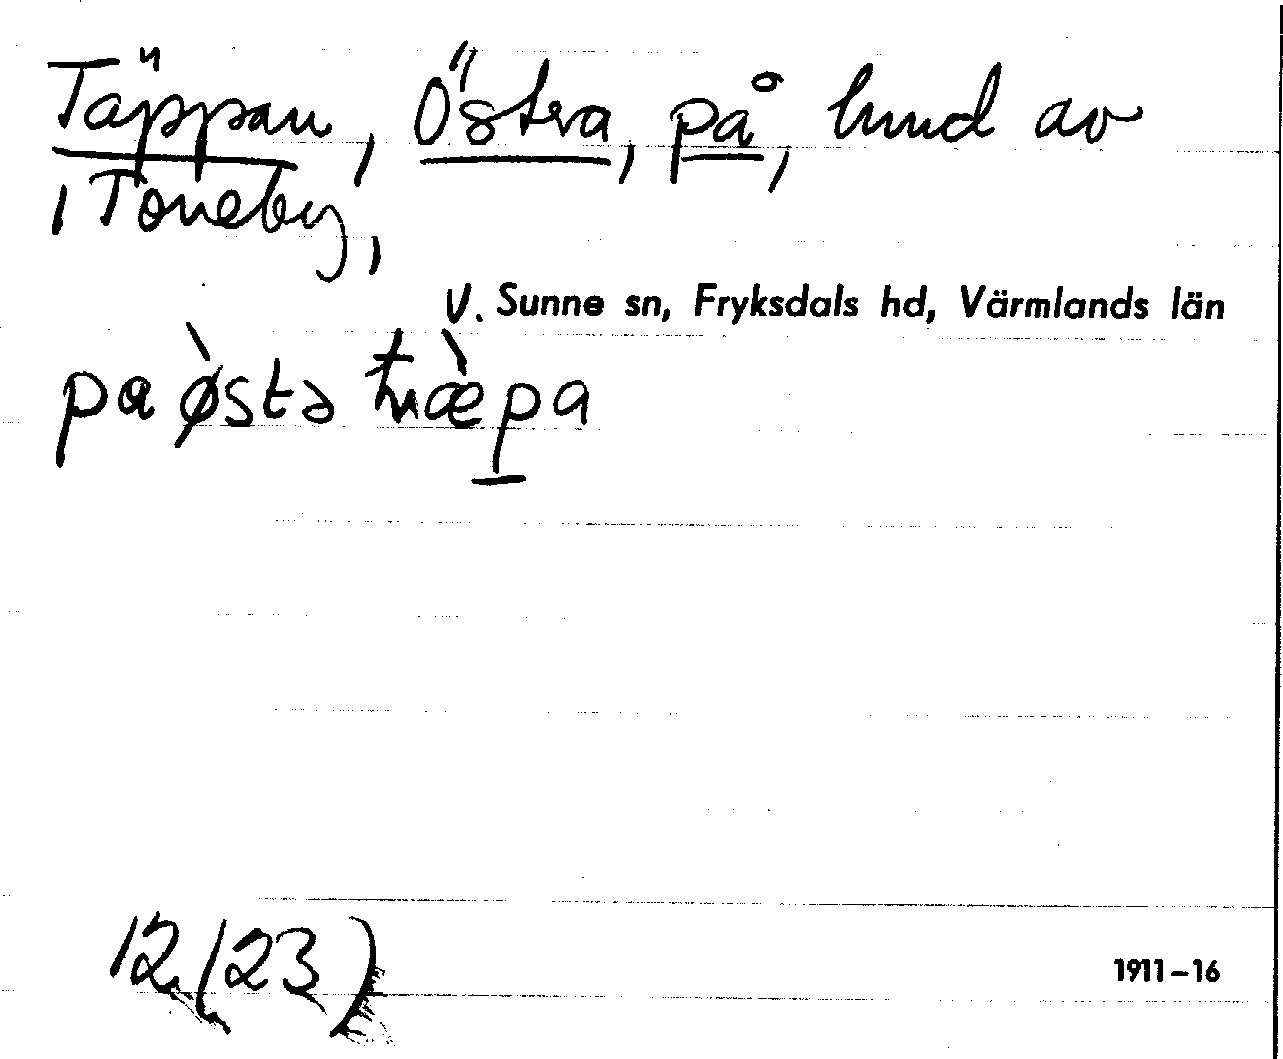 Täppan, Östra, på, hmd av
i Toneby,
V. Sunne sn, Fryksdals hd, Värmlands län
pa østə
12 (23)
1911–16